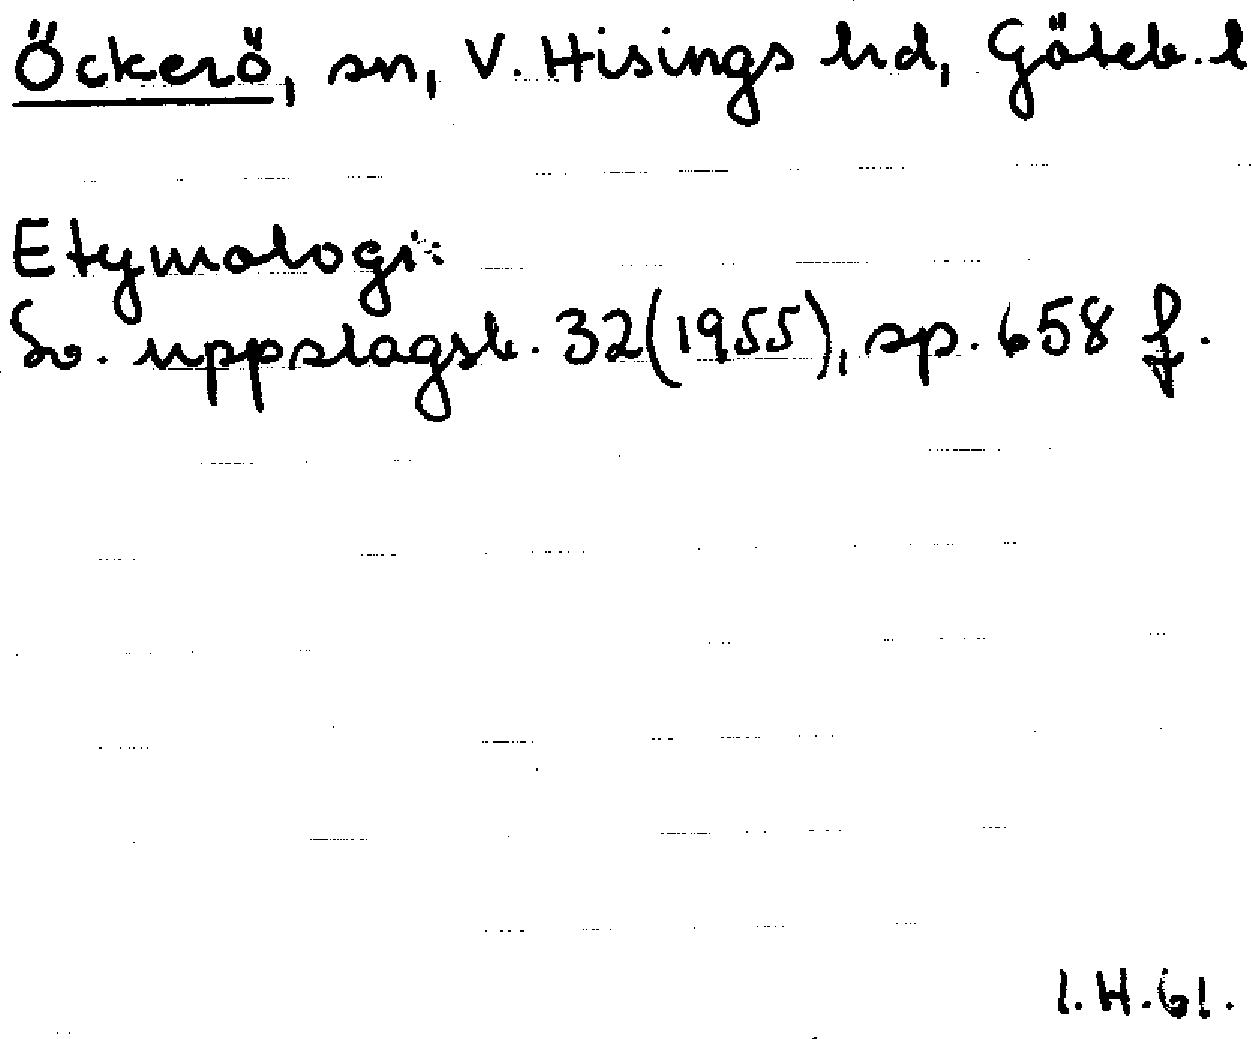 Öckerö, sn, V. Hisings hd, Göteb. l
Etymologi:
Sv. uppslagsb. 32(1955), sp. 658 f.
I.H.61.